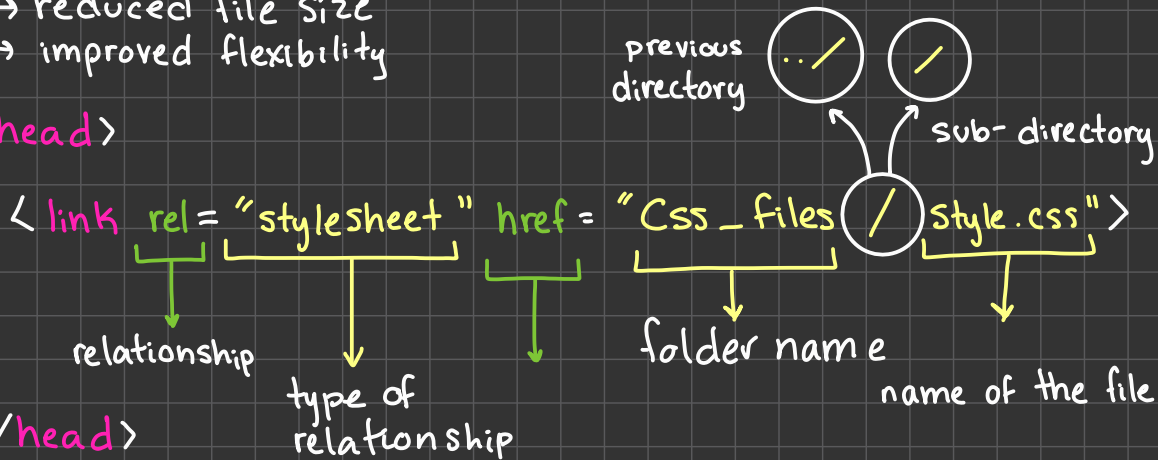 → reduced file size
→ improved flexibility
previous
directory
../
/
sub-directory
head>
<link rel="stylesheet" href="Css_files/style.css">
relationship
type of
relationship
folder name
name of the file
/head>